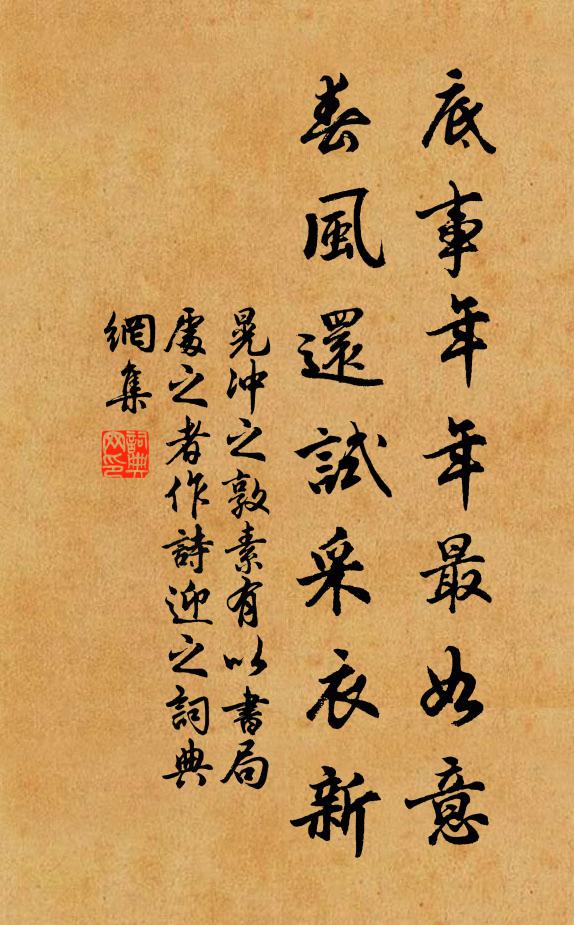 底事年年最如意
春風還試采衣新
晁冲之敦素有以書局
處之者作詩迎之詞典
網集
詞典
网印